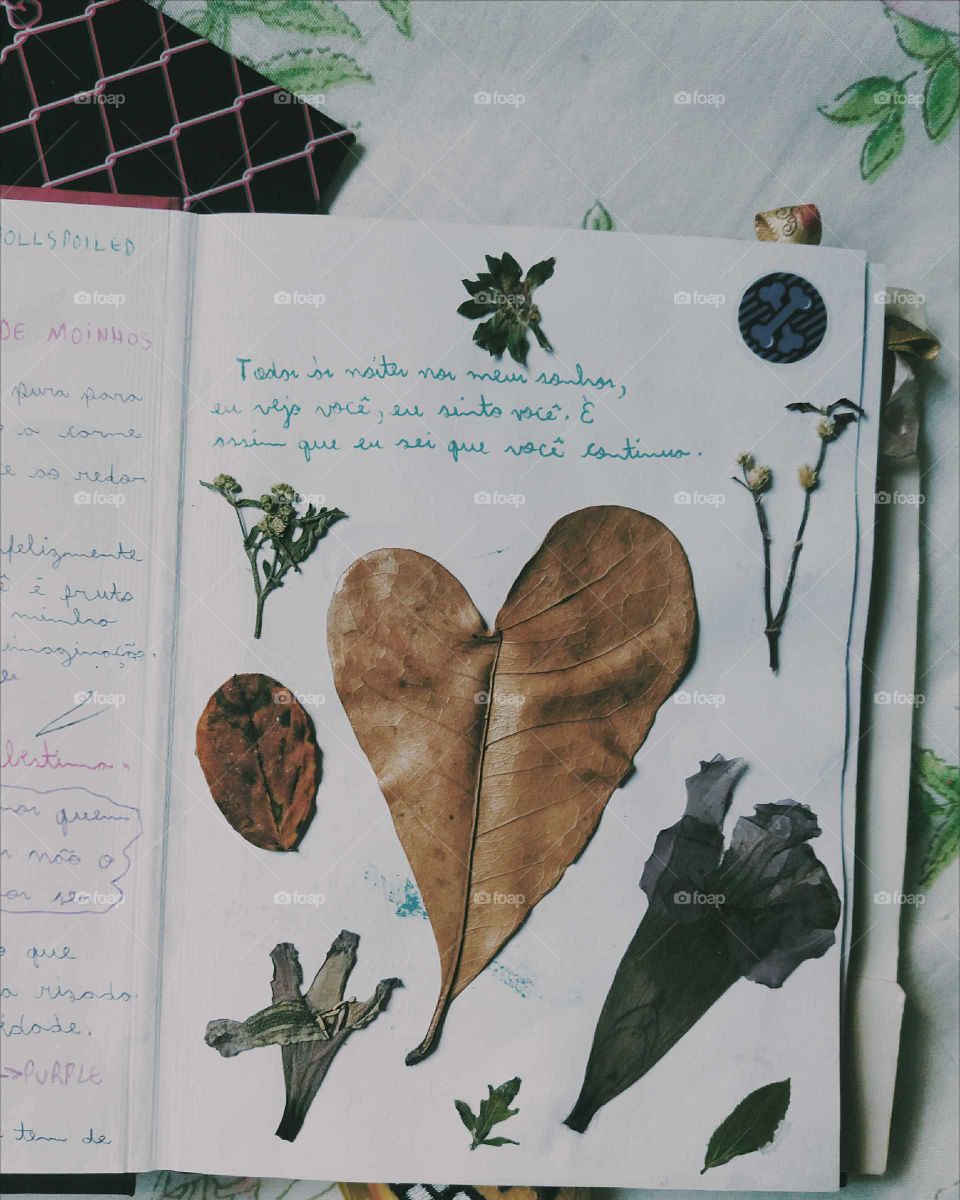 OLLSPOILED
DE MOINHOS
pura para
e a carne
e ao redor
felizmente
ê é fruto
minha
imaginação.
bestima.
mor quem
r não o
por ser
o que
a risada
rdade.
->PURPLE
tem de
Todas as noites nos meus sonhos,
eu vejo você, eu sinto você. É
assim que eu sei que você continua.
foap